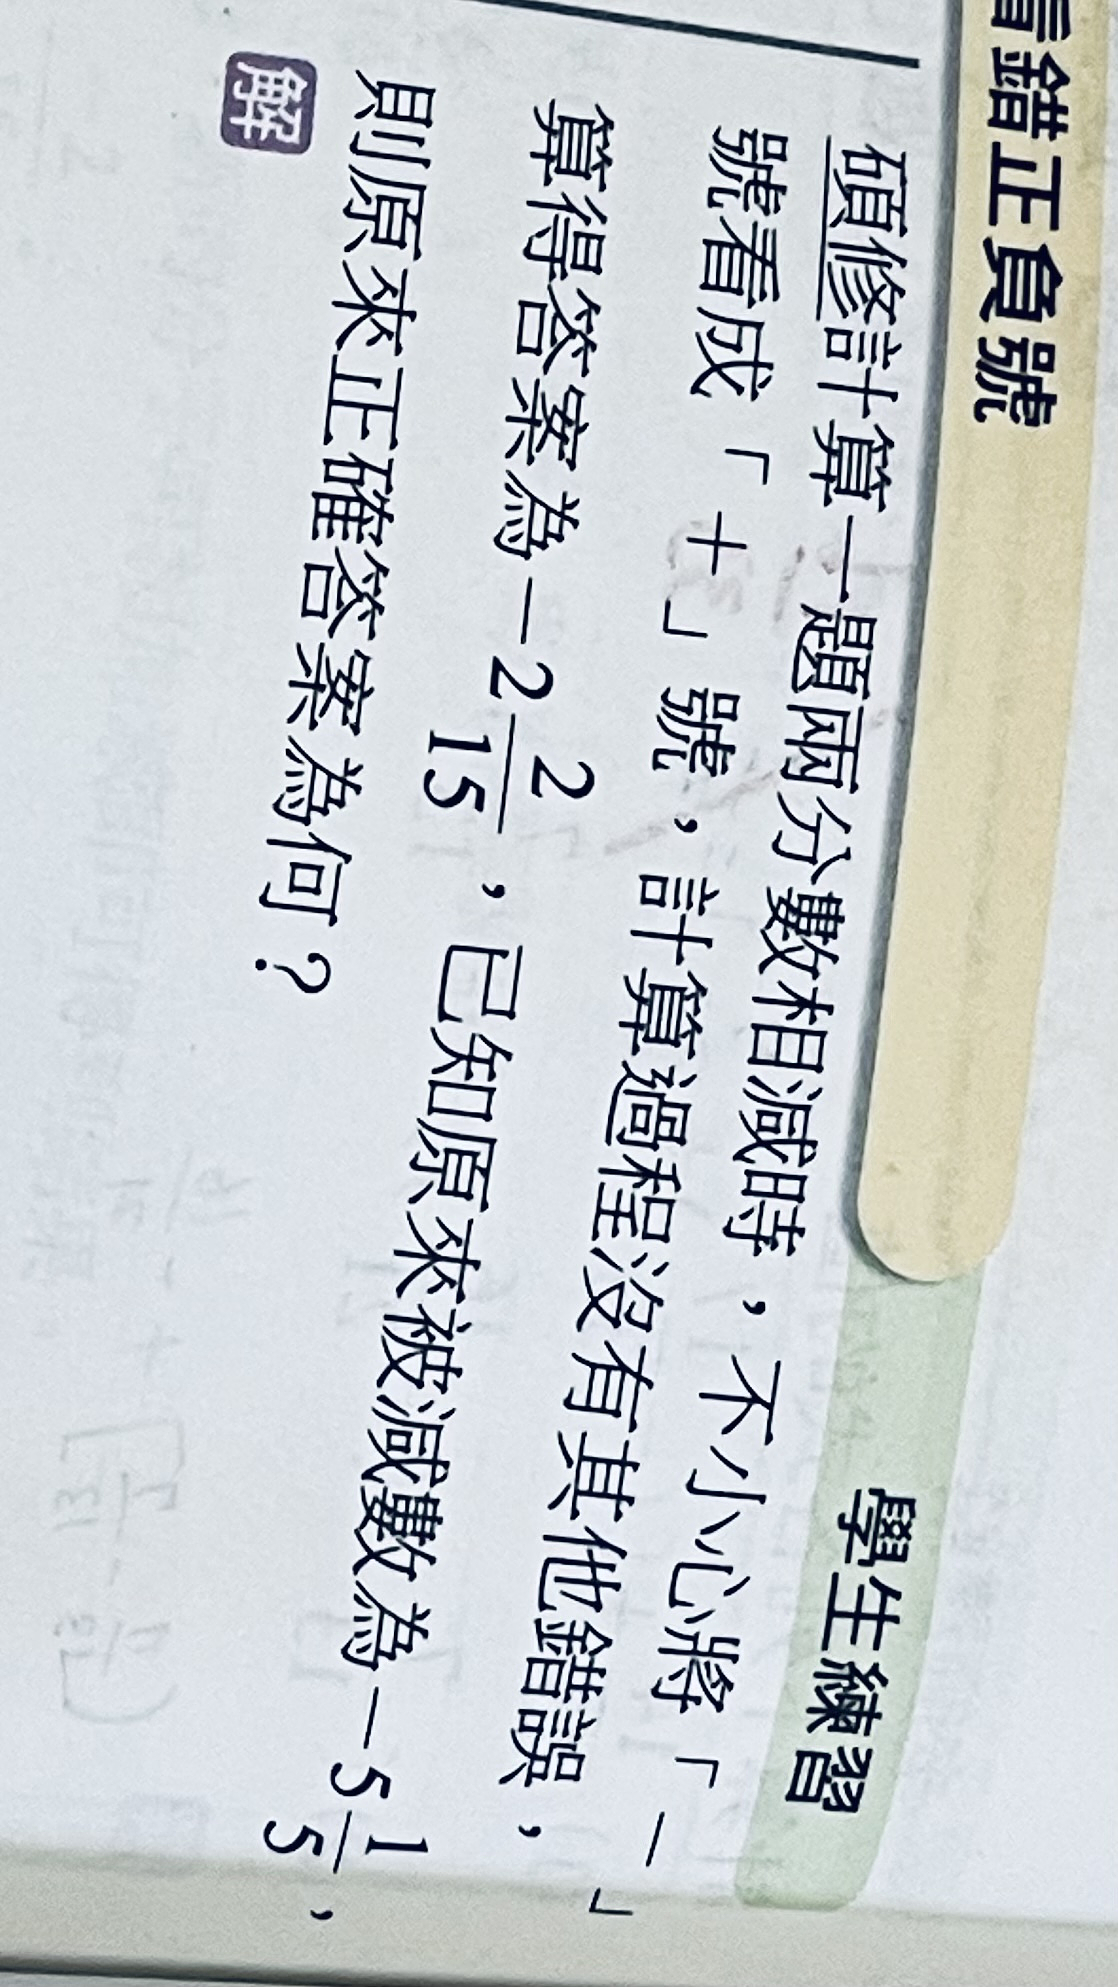 看錯正負號
學生練習
碩修計算一題兩分數相減時，不小心將「－」
號看成「＋」號，計算過程沒有其他錯誤，
算得答案為－2 2/15，已知原來被減數為－5 1/5，
則原來正確答案為何？
解